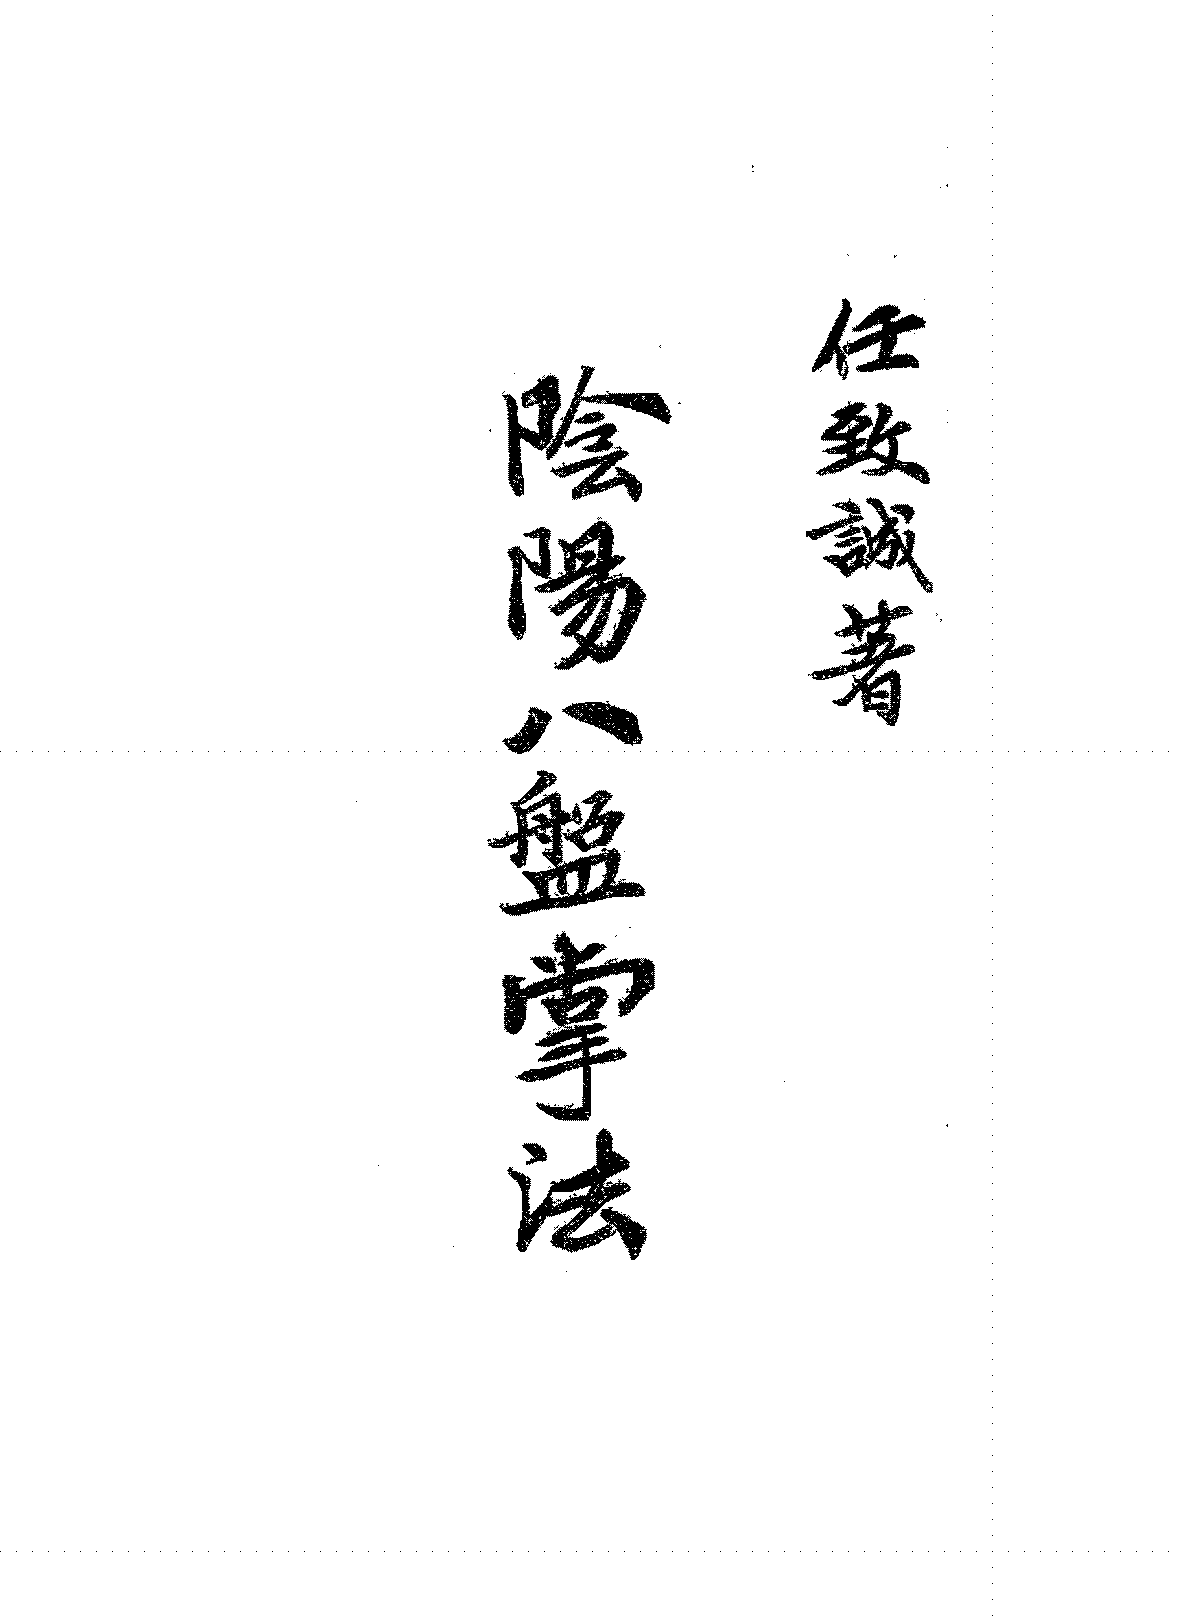 任致誠著
陰陽八盤掌法